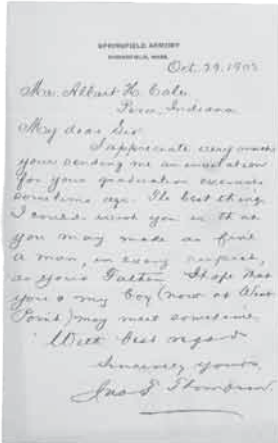 SPRINGFIELD ARMORY
SPRINGFIELD, MASS.
Oct. 29, 1903
Mr. Albert H. Cole,
Peru, Indiana
My dear Sir
I appreciate very much
your sending me an invitation
for your graduation exercises
sometime ago. The best thing
I could wish you is that
you may made as fine
a man, in every respect,
as your Father. I hope that
you & my boy (now at West
Point) may meet sometime.
With best regards
Sincerely yours,
Thompson